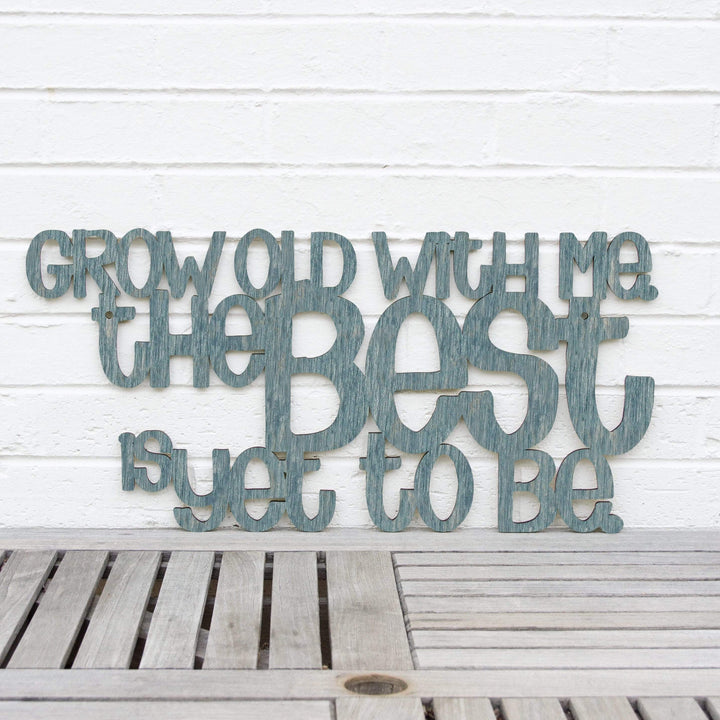 GROW OLD WITH ME.
the Best
is yet to Be.